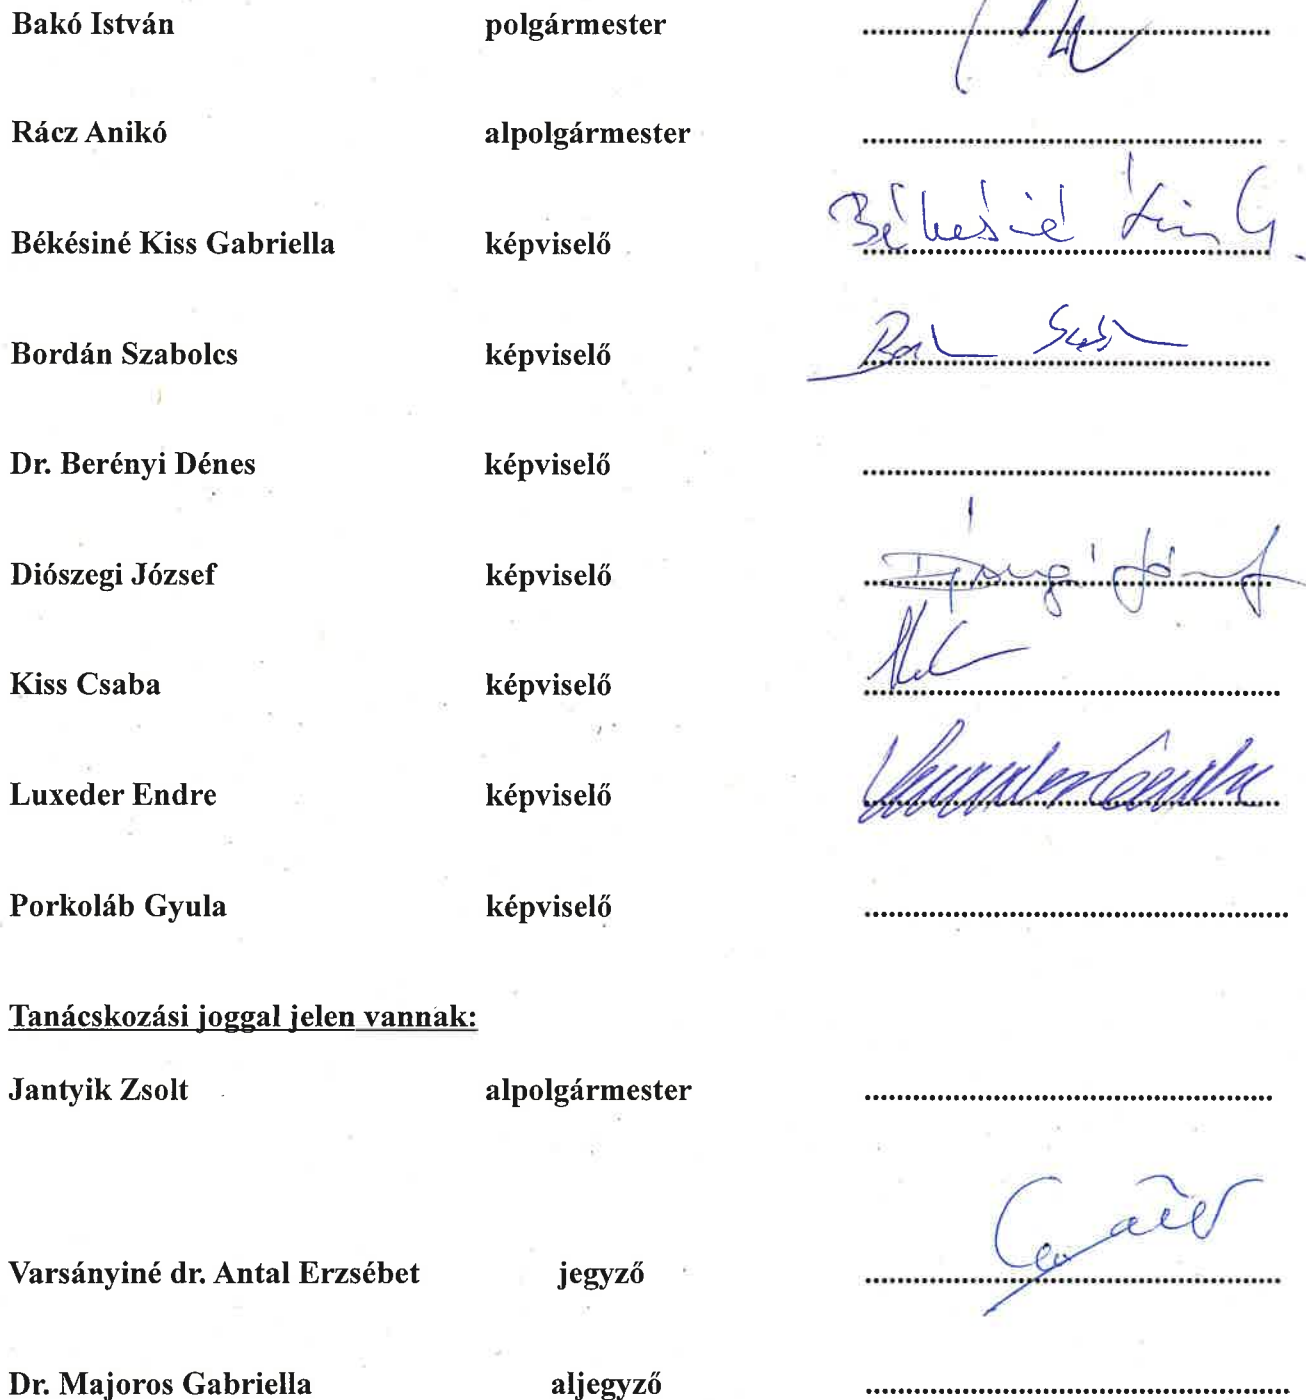 Bakó István polgármester
Rácz Anikó alpolgármester
Békésiné Kiss Gabriella képviselő Békésiné Kiss G.
Bordán Szabolcs képviselő
Dr. Berényi Dénes képviselő
Diószegi József képviselő
Kiss Csaba képviselő
Luxeder Endre képviselő
Porkoláb Gyula képviselő
Tanácskozási joggal jelen vannak:
Jantyik Zsolt alpolgármester
Varsányiné dr. Antal Erzsébet jegyző
Dr. Majoros Gabriella aljegyző